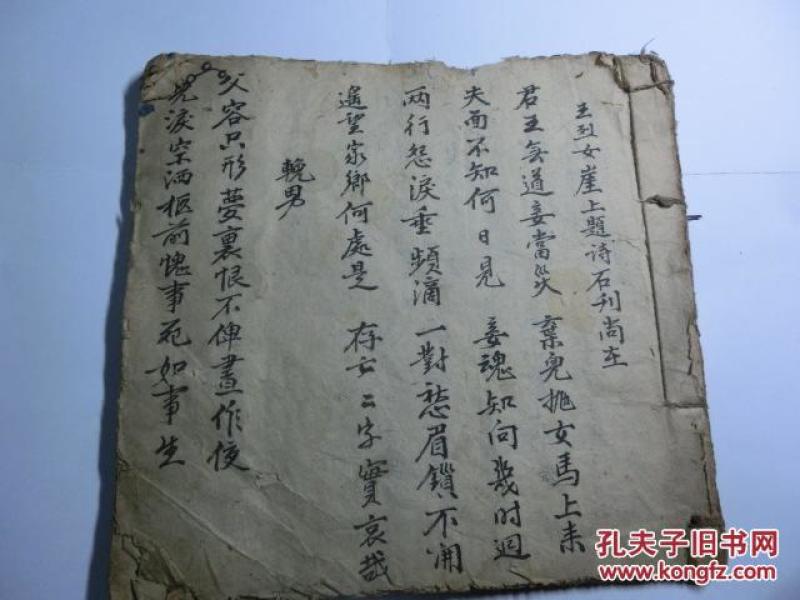 王烈女崖上題诗石刊尚在
君王無道妾當災 棄児抛女馬上来
夫面不知何日見 妾魂知向幾时迴
两行怨淚垂頻滴 一對愁眉鎖不開
遥望家鄉何處是 存亡二字實哀哉
輓男
父容只形夢裏恨不俾晝作夜
児淚空洒柩前愧事死如事生
孔夫子旧书网
www.kongfz.com